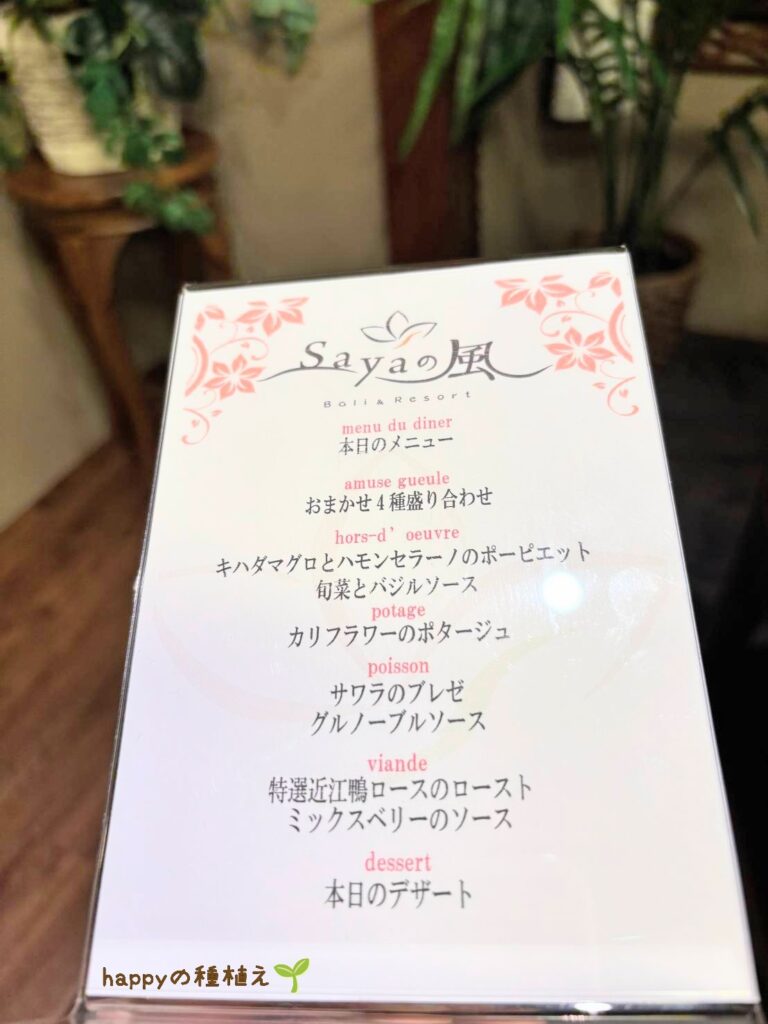 Sayaの風
Bali & Resort
menu du diner
本日のメニュー
amuse gueule
おまかせ4種盛り合わせ
hors-d’oeuvre
キハダマグロとハモンセラーノのポーピエット
旬菜とバジルソース
potage
カリフラワーのポタージュ
poisson
サワラのブレゼ
グルノーブルソース
viande
特選近江鴨ロースのロースト
ミックスベリーのソース
dessert
本日のデザート
happyの種植え